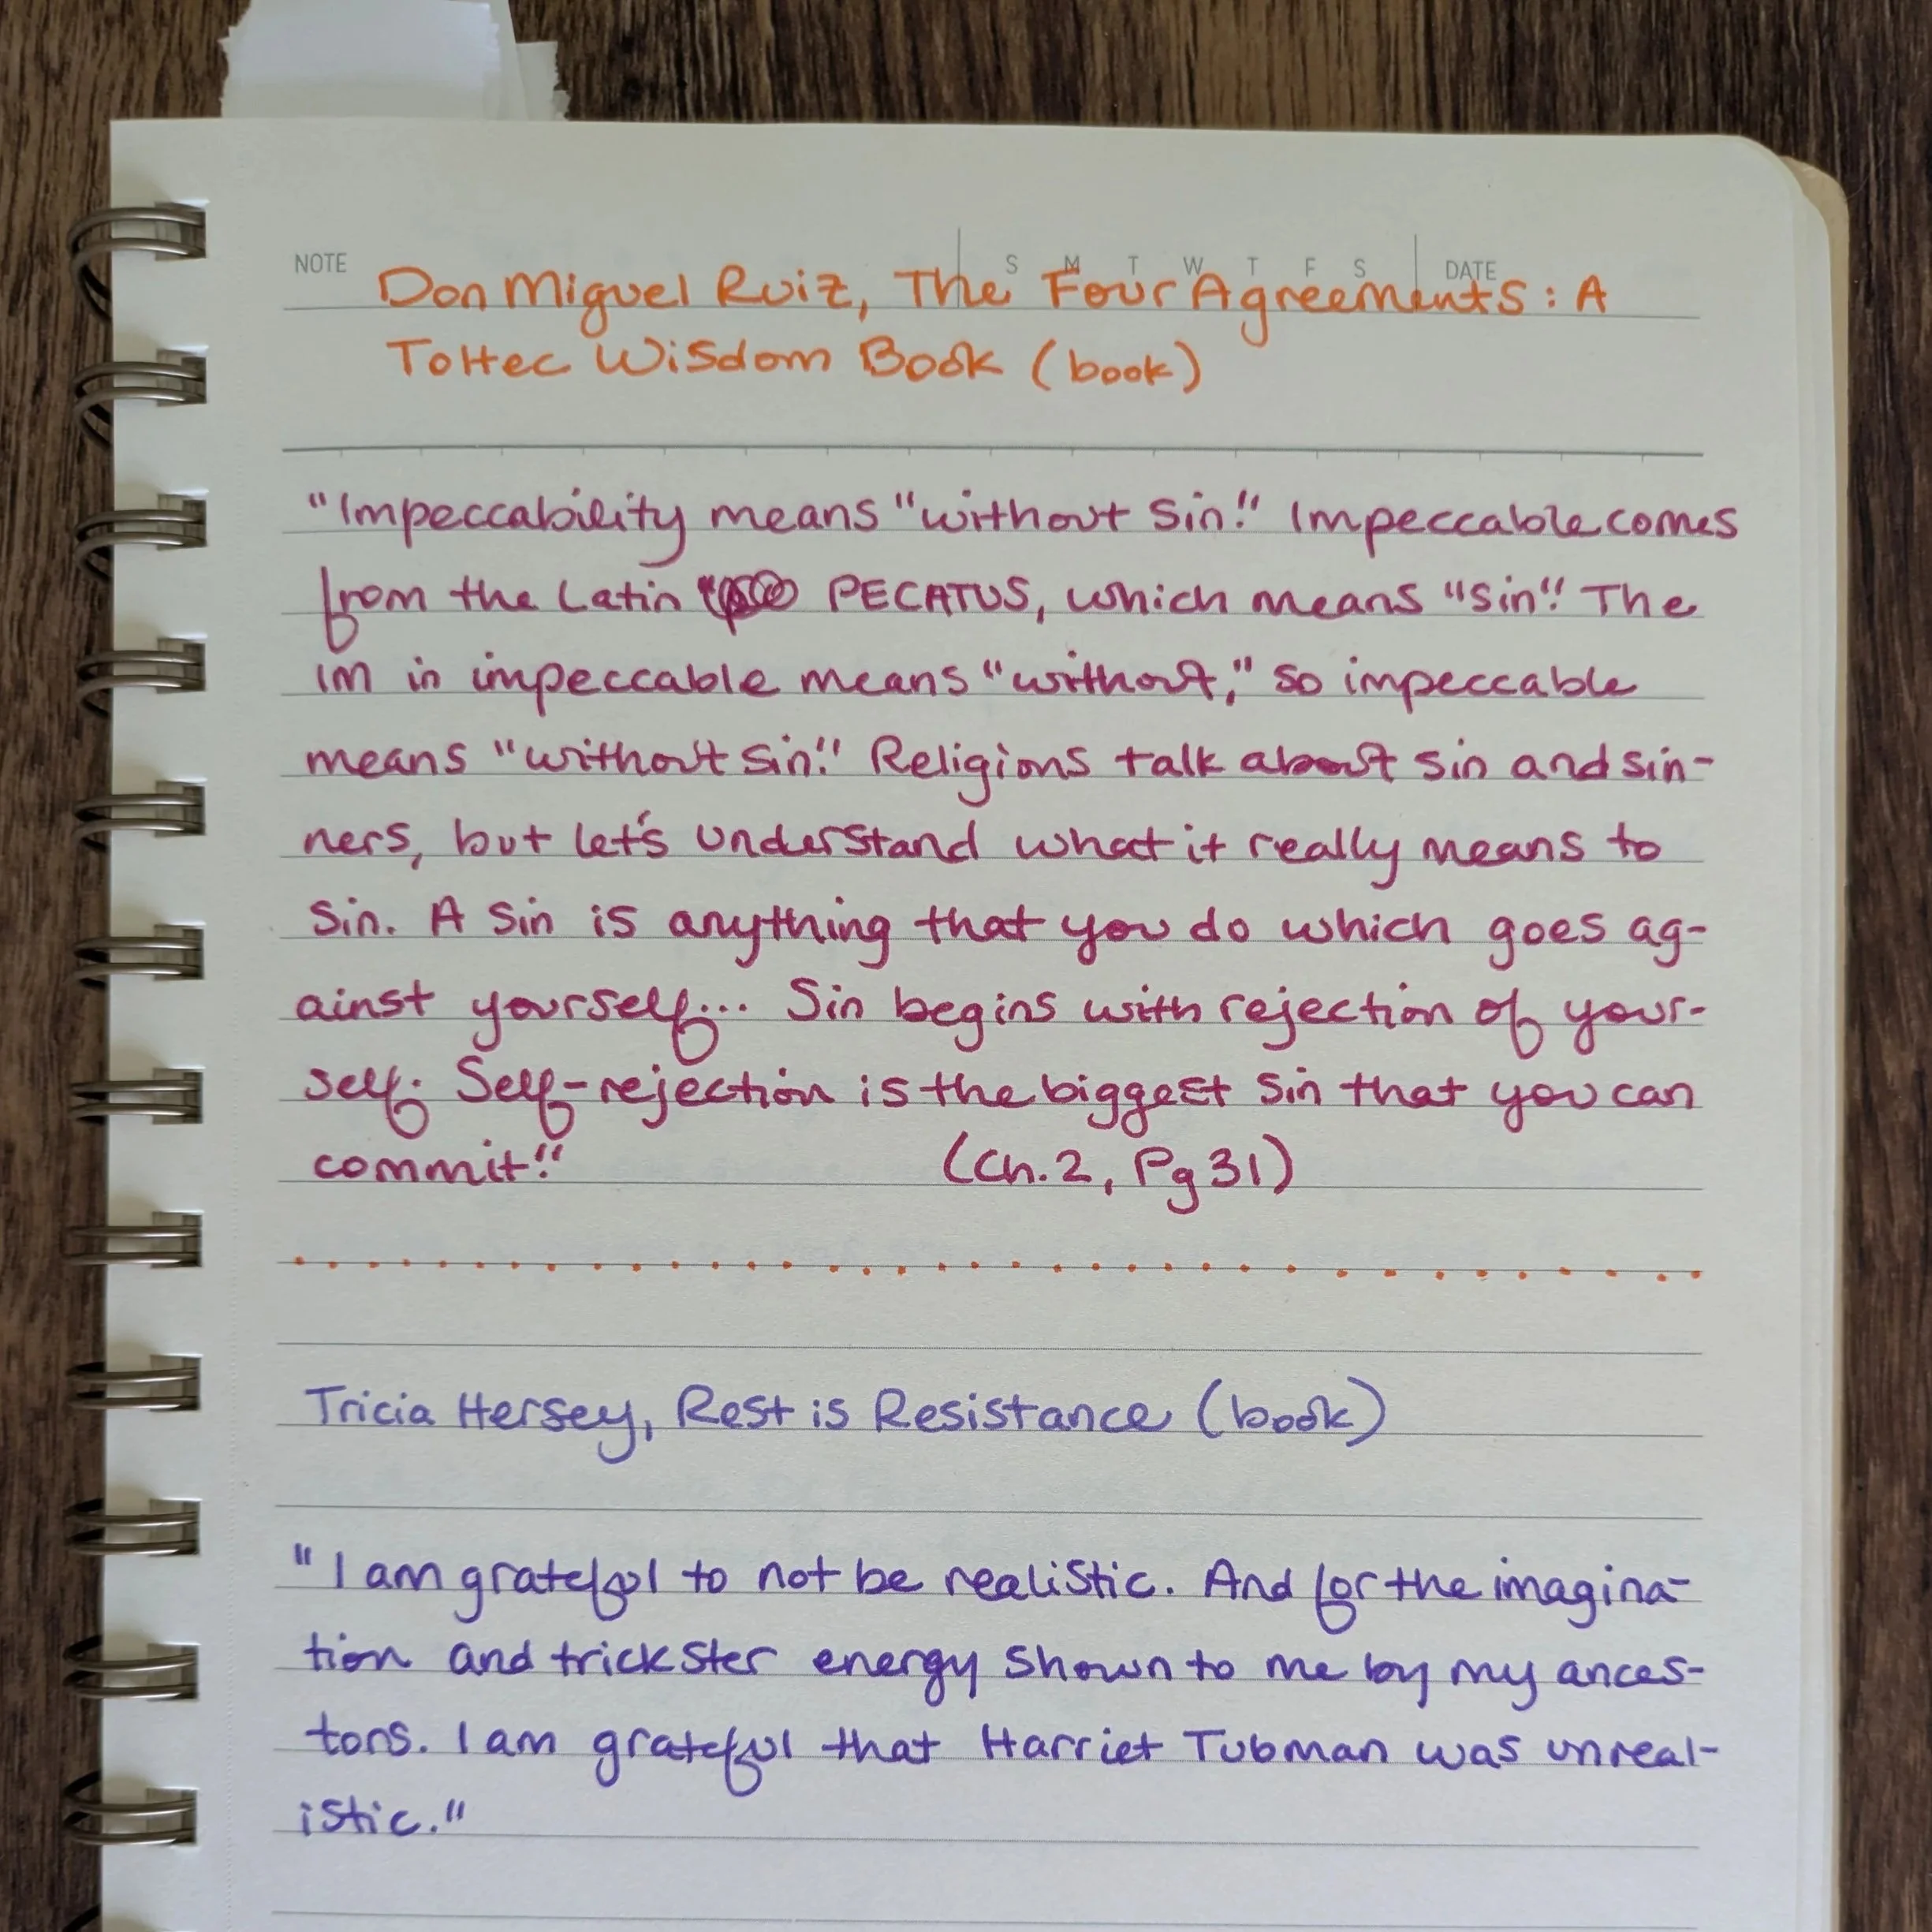 NOTE S M T W T F S DATE
Don Miguel Ruiz, The Four Agreements: A
Toltec Wisdom Book (book)
"Impeccability means "without sin." Impeccable comes
from the Latin PECATUS, which means "sin." The
IM in impeccable means "without," so impeccable
means "without sin." Religions talk about sin and sin-
ners, but let's understand what it really means to
sin. A sin is anything that you do which goes ag-
ainst yourself... Sin begins with rejection of your-
self. Self-rejection is the biggest sin that you can
commit." (Ch.2, Pg 31)
Tricia Hersey, Rest is Resistance (book)
"I am grateful to not be realistic. And for the imagina-
tion and trickster energy shown to me by my ances-
tors. I am grateful that Harriet Tubman was unreal-
istic."